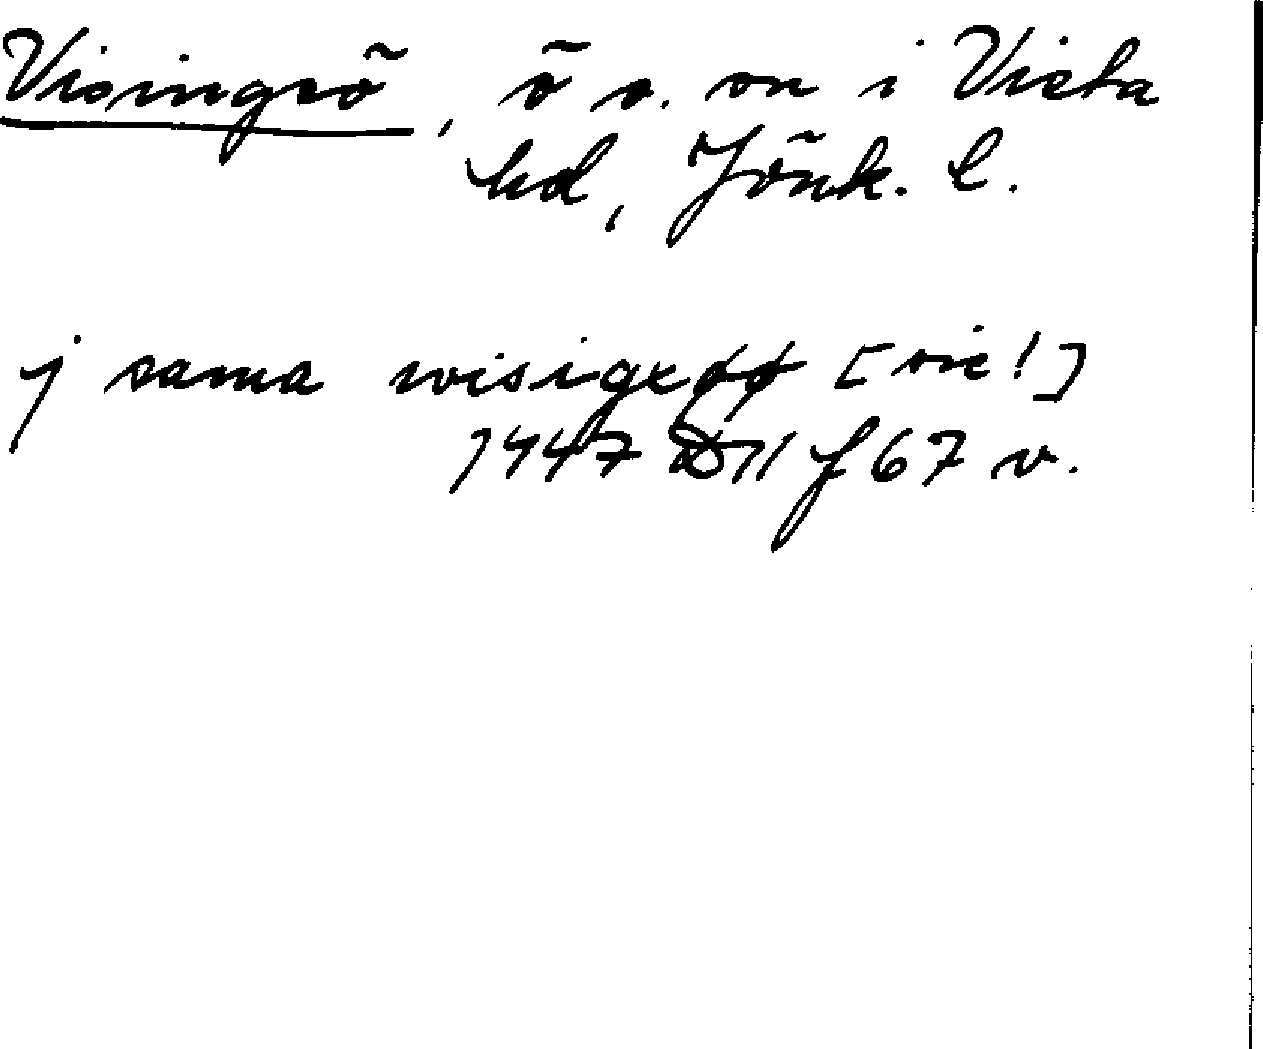 Visingsö, ö o. sn i Vista
hd, Jönk. l.
j sama wisigxøø [sic!]
1447 D11 f 67 v.